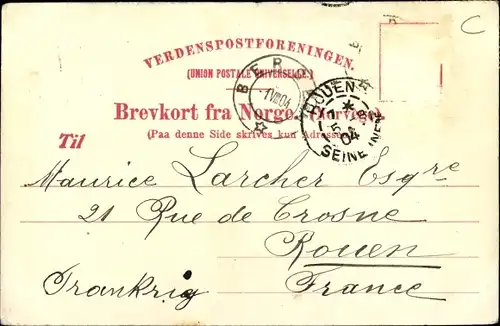 C
VERDENSPOSTFORENINGEN.
(UNION POSTALE UNIVERSELLE.)
BER
1 VIII 04
ROUEN
5
04
SEINE INFRE
Brevkort fra Norge. (Norvège).
(Paa denne Side skrives kun Adressen.)
Til
Maurice Larcher Esqre
21 Rue de Crosne
Rouen
Frankrig France